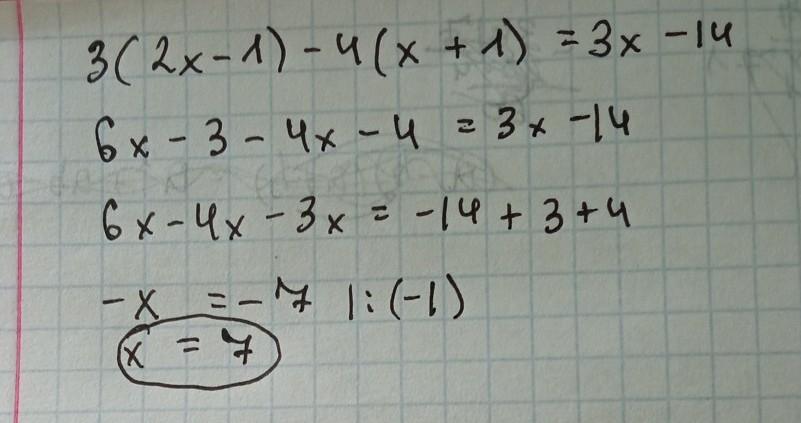 3(2x-1)-4(x+1) = 3x-14
6x-3-4x-4 = 3x-14
6x-4x-3x = -14+3+4
-x = -7 |:(-1)
x = 7